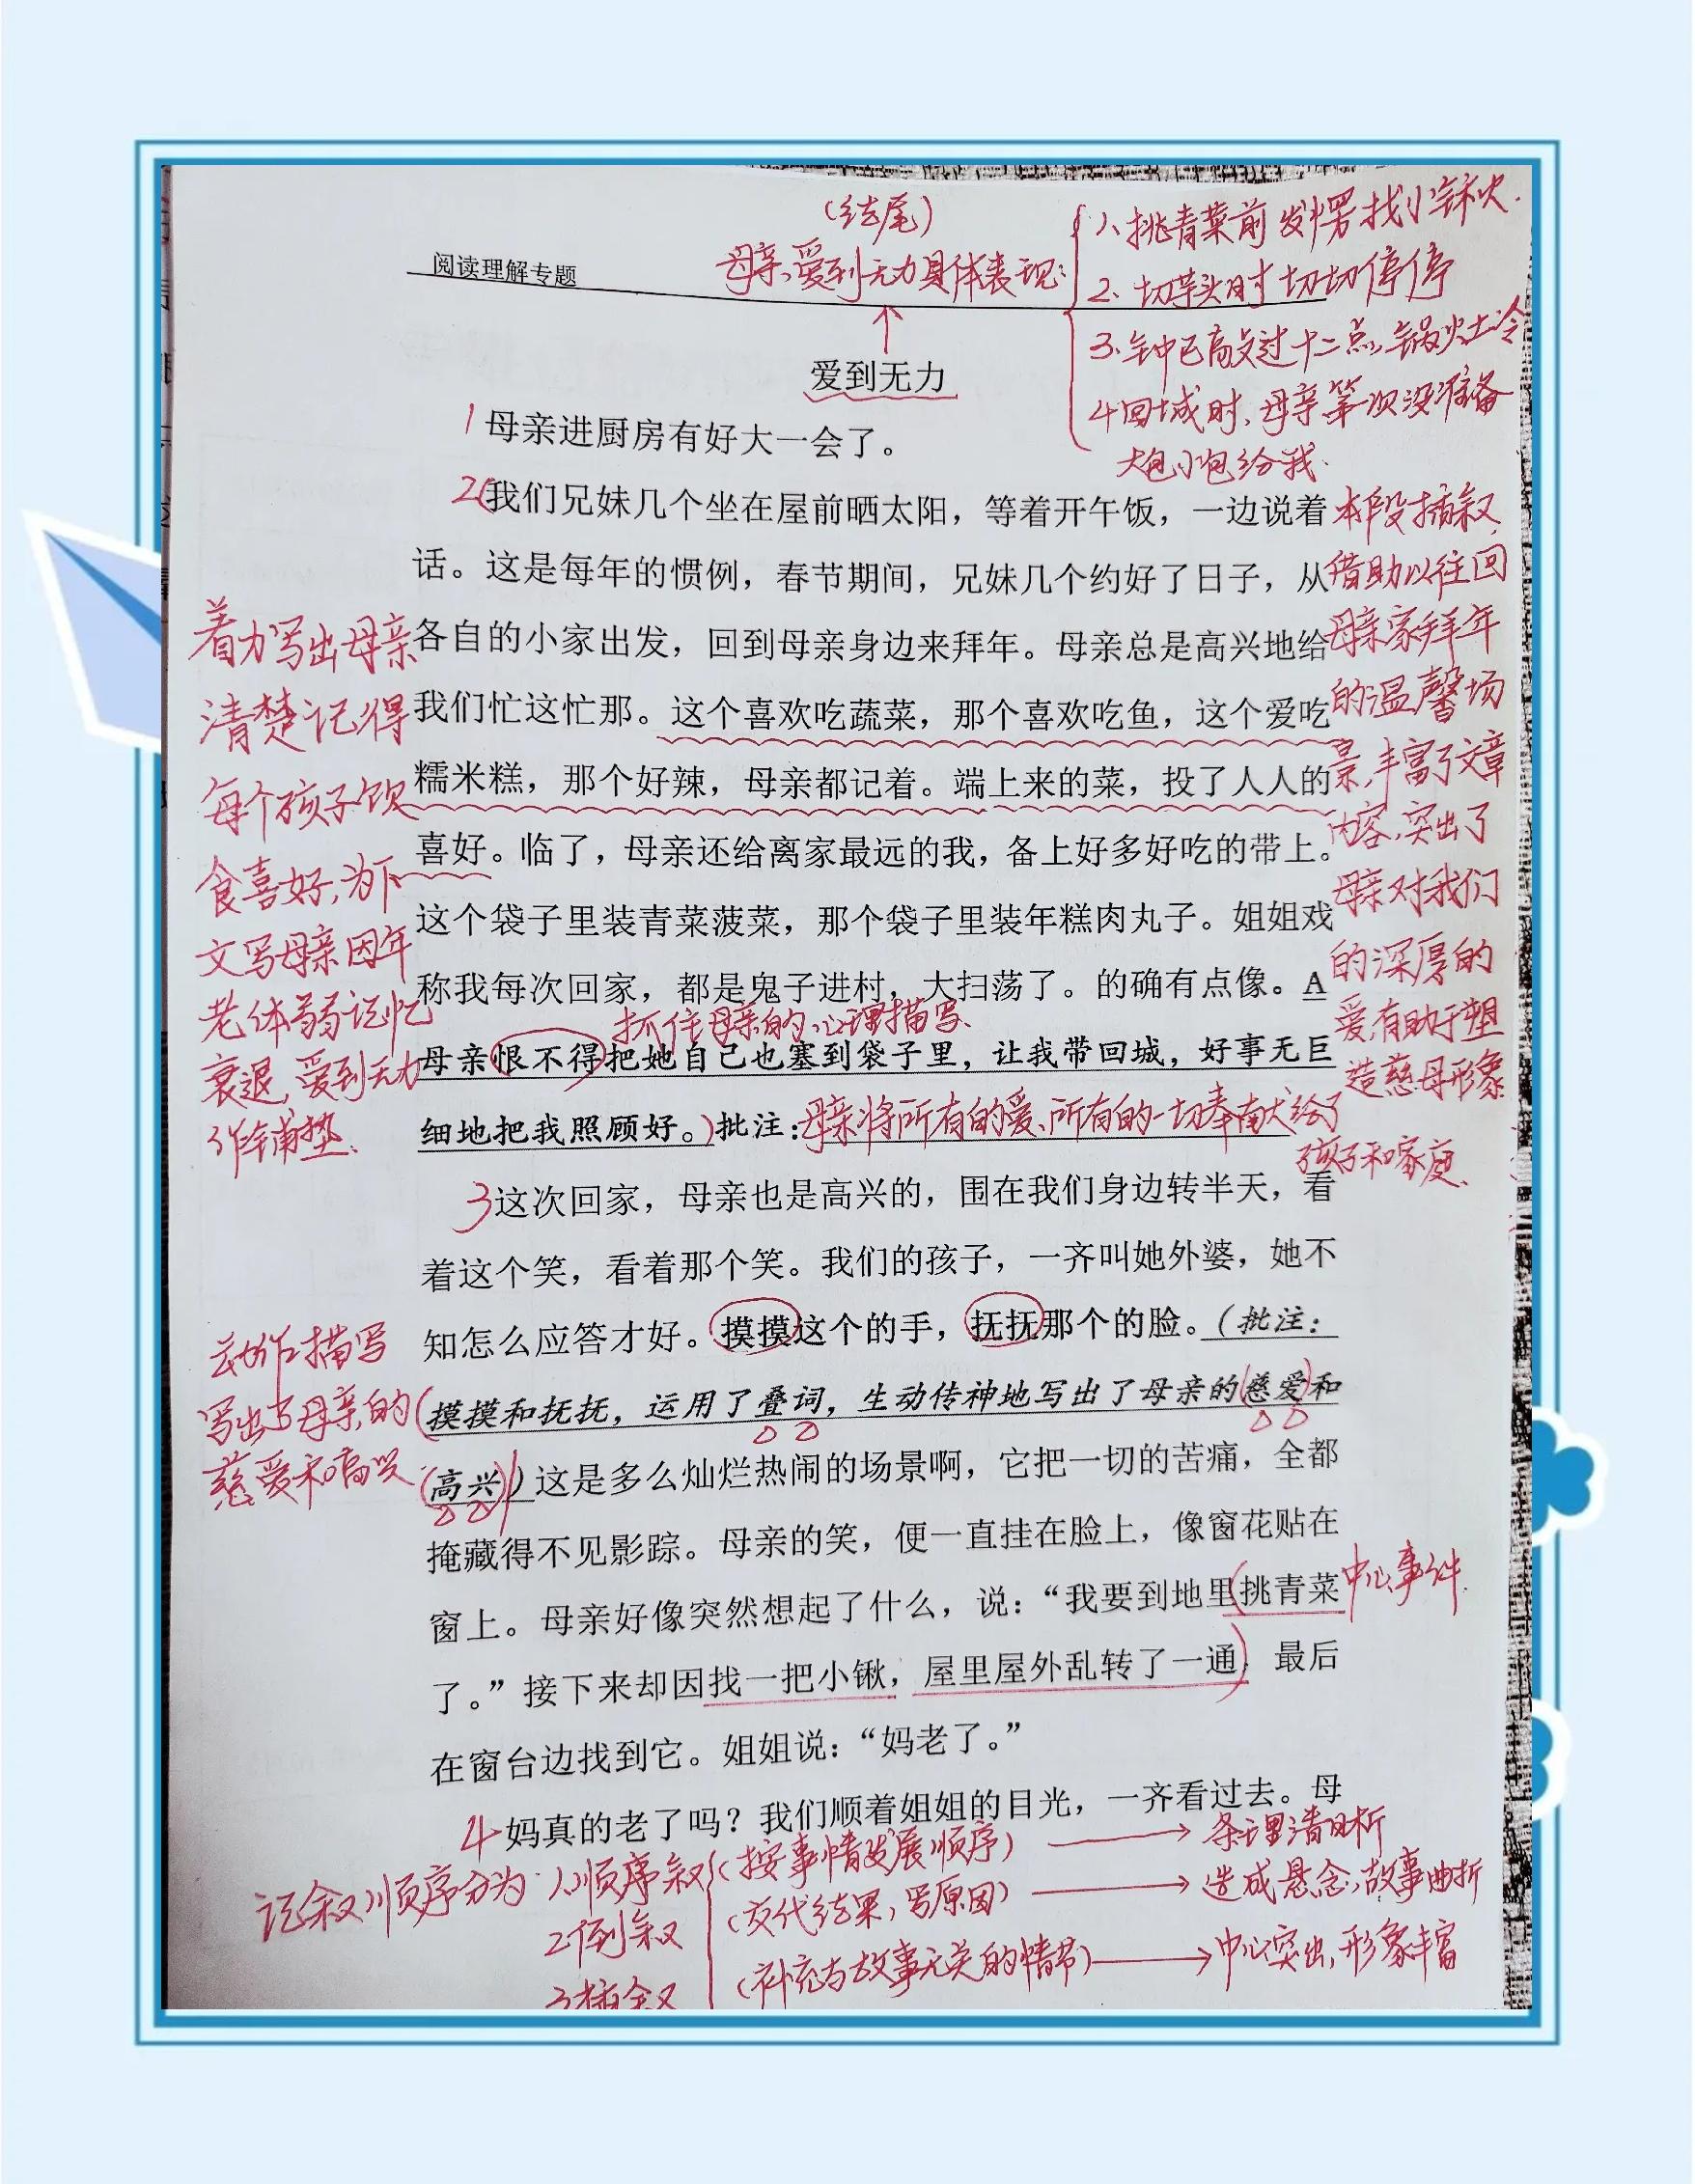 (结尾)
母亲爱到无力具体表现:
1、挑青菜前发愣找小锹
2、切芋头时切切停停
3、钟已敲过十二点,锅灶冷
4 回城时,母亲第一次没准备
大包小包给我.
阅读理解专题
爱到无力
1 母亲进厨房有好大一会了。
2(我们兄妹几个坐在屋前晒太阳，等着开午饭，一边说着
话。这是每年的惯例，春节期间，兄妹几个约好了日子，从
各自的小家出发，回到母亲身边来拜年。母亲总是高兴地给
我们忙这忙那。这个喜欢吃蔬菜，那个喜欢吃鱼，这个爱吃
糯米糕，那个好辣，母亲都记着。端上来的菜，投了人人的
喜好。临了，母亲还给离家最远的我，备上好多好吃的带上。
这个袋子里装青菜菠菜，那个袋子里装年糕肉丸子。姐姐戏
称我每次回家，都是鬼子进村，大扫荡了。的确有点像。A
抓住母亲的心理描写、
母亲恨不得把她自己也塞到袋子里，让我带回城，好事无巨
细地把我照顾好。)批注:母亲将所有的爱、所有的一切奉献给了
孩子和家庭、
本段插叙
借助以往回
母亲家拜年
的温馨场
景,丰富了文章
内容,突出了
母亲对我们
的深厚的
爱,有助于塑
造慈母形象
着力写出母亲
清楚记得
每个孩子饮
食喜好,为下
文写母亲因年
老体弱记忆
衰退,爱到无力
作铺垫.
3 这次回家，母亲也是高兴的，围在我们身边转半天，看
着这个笑，看着那个笑。我们的孩子，一齐叫她外婆，她不
知怎么应答才好。摸摸这个的手，抚抚那个的脸。（批注：
摸摸和抚抚，运用了叠词，生动传神地写出了母亲的慈爱和
高兴）这是多么灿烂热闹的场景啊，它把一切的苦痛，全都
掩藏得不见影踪。母亲的笑，便一直挂在脸上，像窗花贴在
窗上。母亲好像突然想起了什么，说：“我要到地里挑青菜
了。”接下来却因找一把小锹，屋里屋外乱转了一通，最后
在窗台边找到它。姐姐说：“妈老了。”
动作描写
写出了母亲的
慈爱和高兴
中心事件
4 妈真的老了吗？我们顺着姐姐的目光，一齐看过去。母
记叙顺序分为 1、顺序叙 (按事情发展顺序) → 条理清晰
2 倒叙 (交代结果,写原因) → 造成悬念,故事曲折
3 插叙 (补充与故事无关的情节) → 中心突出,形象丰富